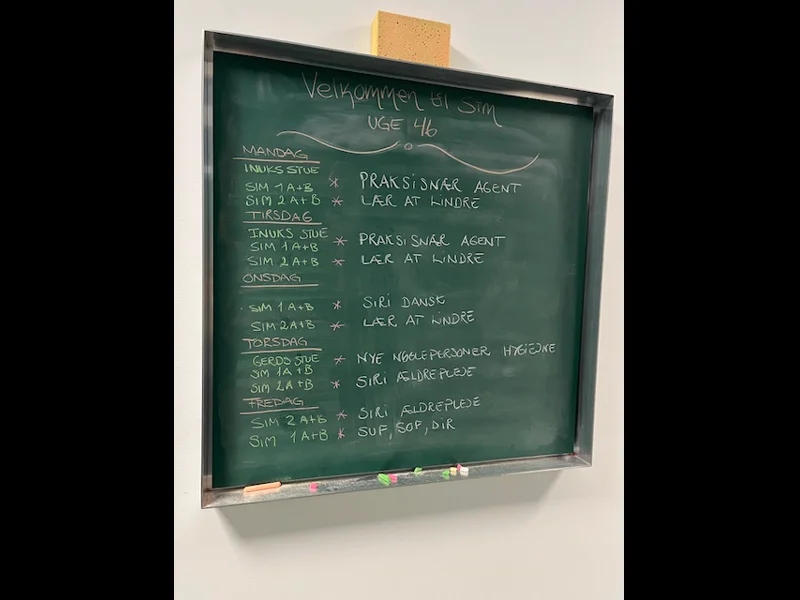 Velkommen til Sim
UGE 46
MANDAG
INUKS STUE
SIM 1 A+B * PRAKSISNÆR AGENT
SIM 2 A+B * LÆR AT LINDRE
TIRSDAG
INUKS STUE
SIM 1 A+B * PRAKSISNÆR AGENT
SIM 2 A+B * LÆR AT LINDRE
ONSDAG
SIM 1 A+B * SIRI DANSK
SIM 2 A+B * LÆR AT LINDRE
TORSDAG
GERDS STUE * NYE NØGLEPERSONER HYGIEJNE
SIM 1A+B
SIM 2A+B * SIRI ÆLDREPLEJE
FREDAG
SIM 2 A+B * SIRI ÆLDREPLEJE
SIM 1A+B * SUF, SOF, DIR